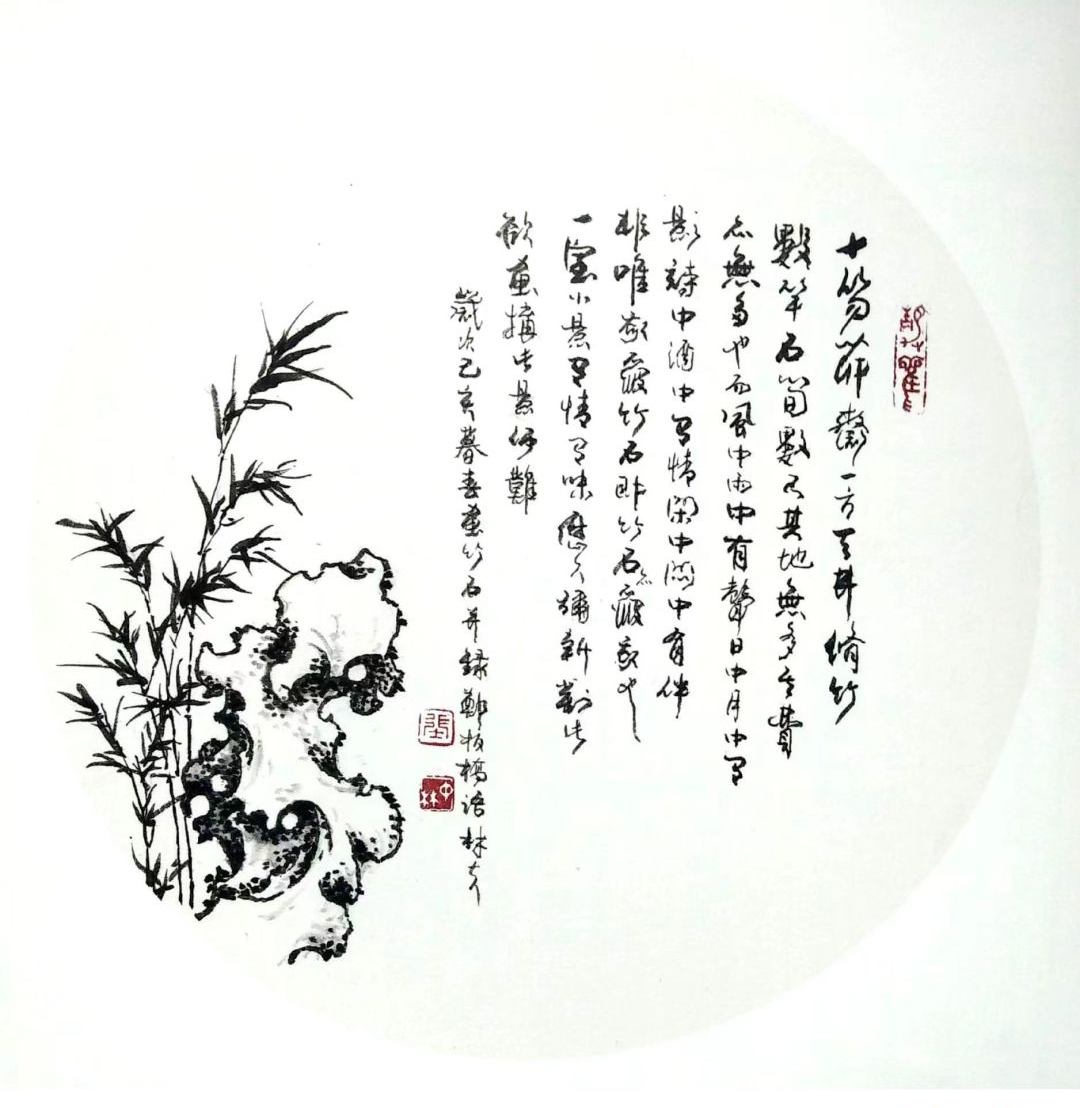 十笏茆齋一方天井脩竹
數竿石筍數尺其地無多其費
亦無多也而風中雨中有聲日中月中有
影詩中酒中有情閑中悶中有伴
非唯我愛竹石即竹石亦愛我也
一室小景有情有味歷久彌新對此
欲畫構此景何難
歲次己亥暮春畫竹石并錄鄭板橋語林
張
中林